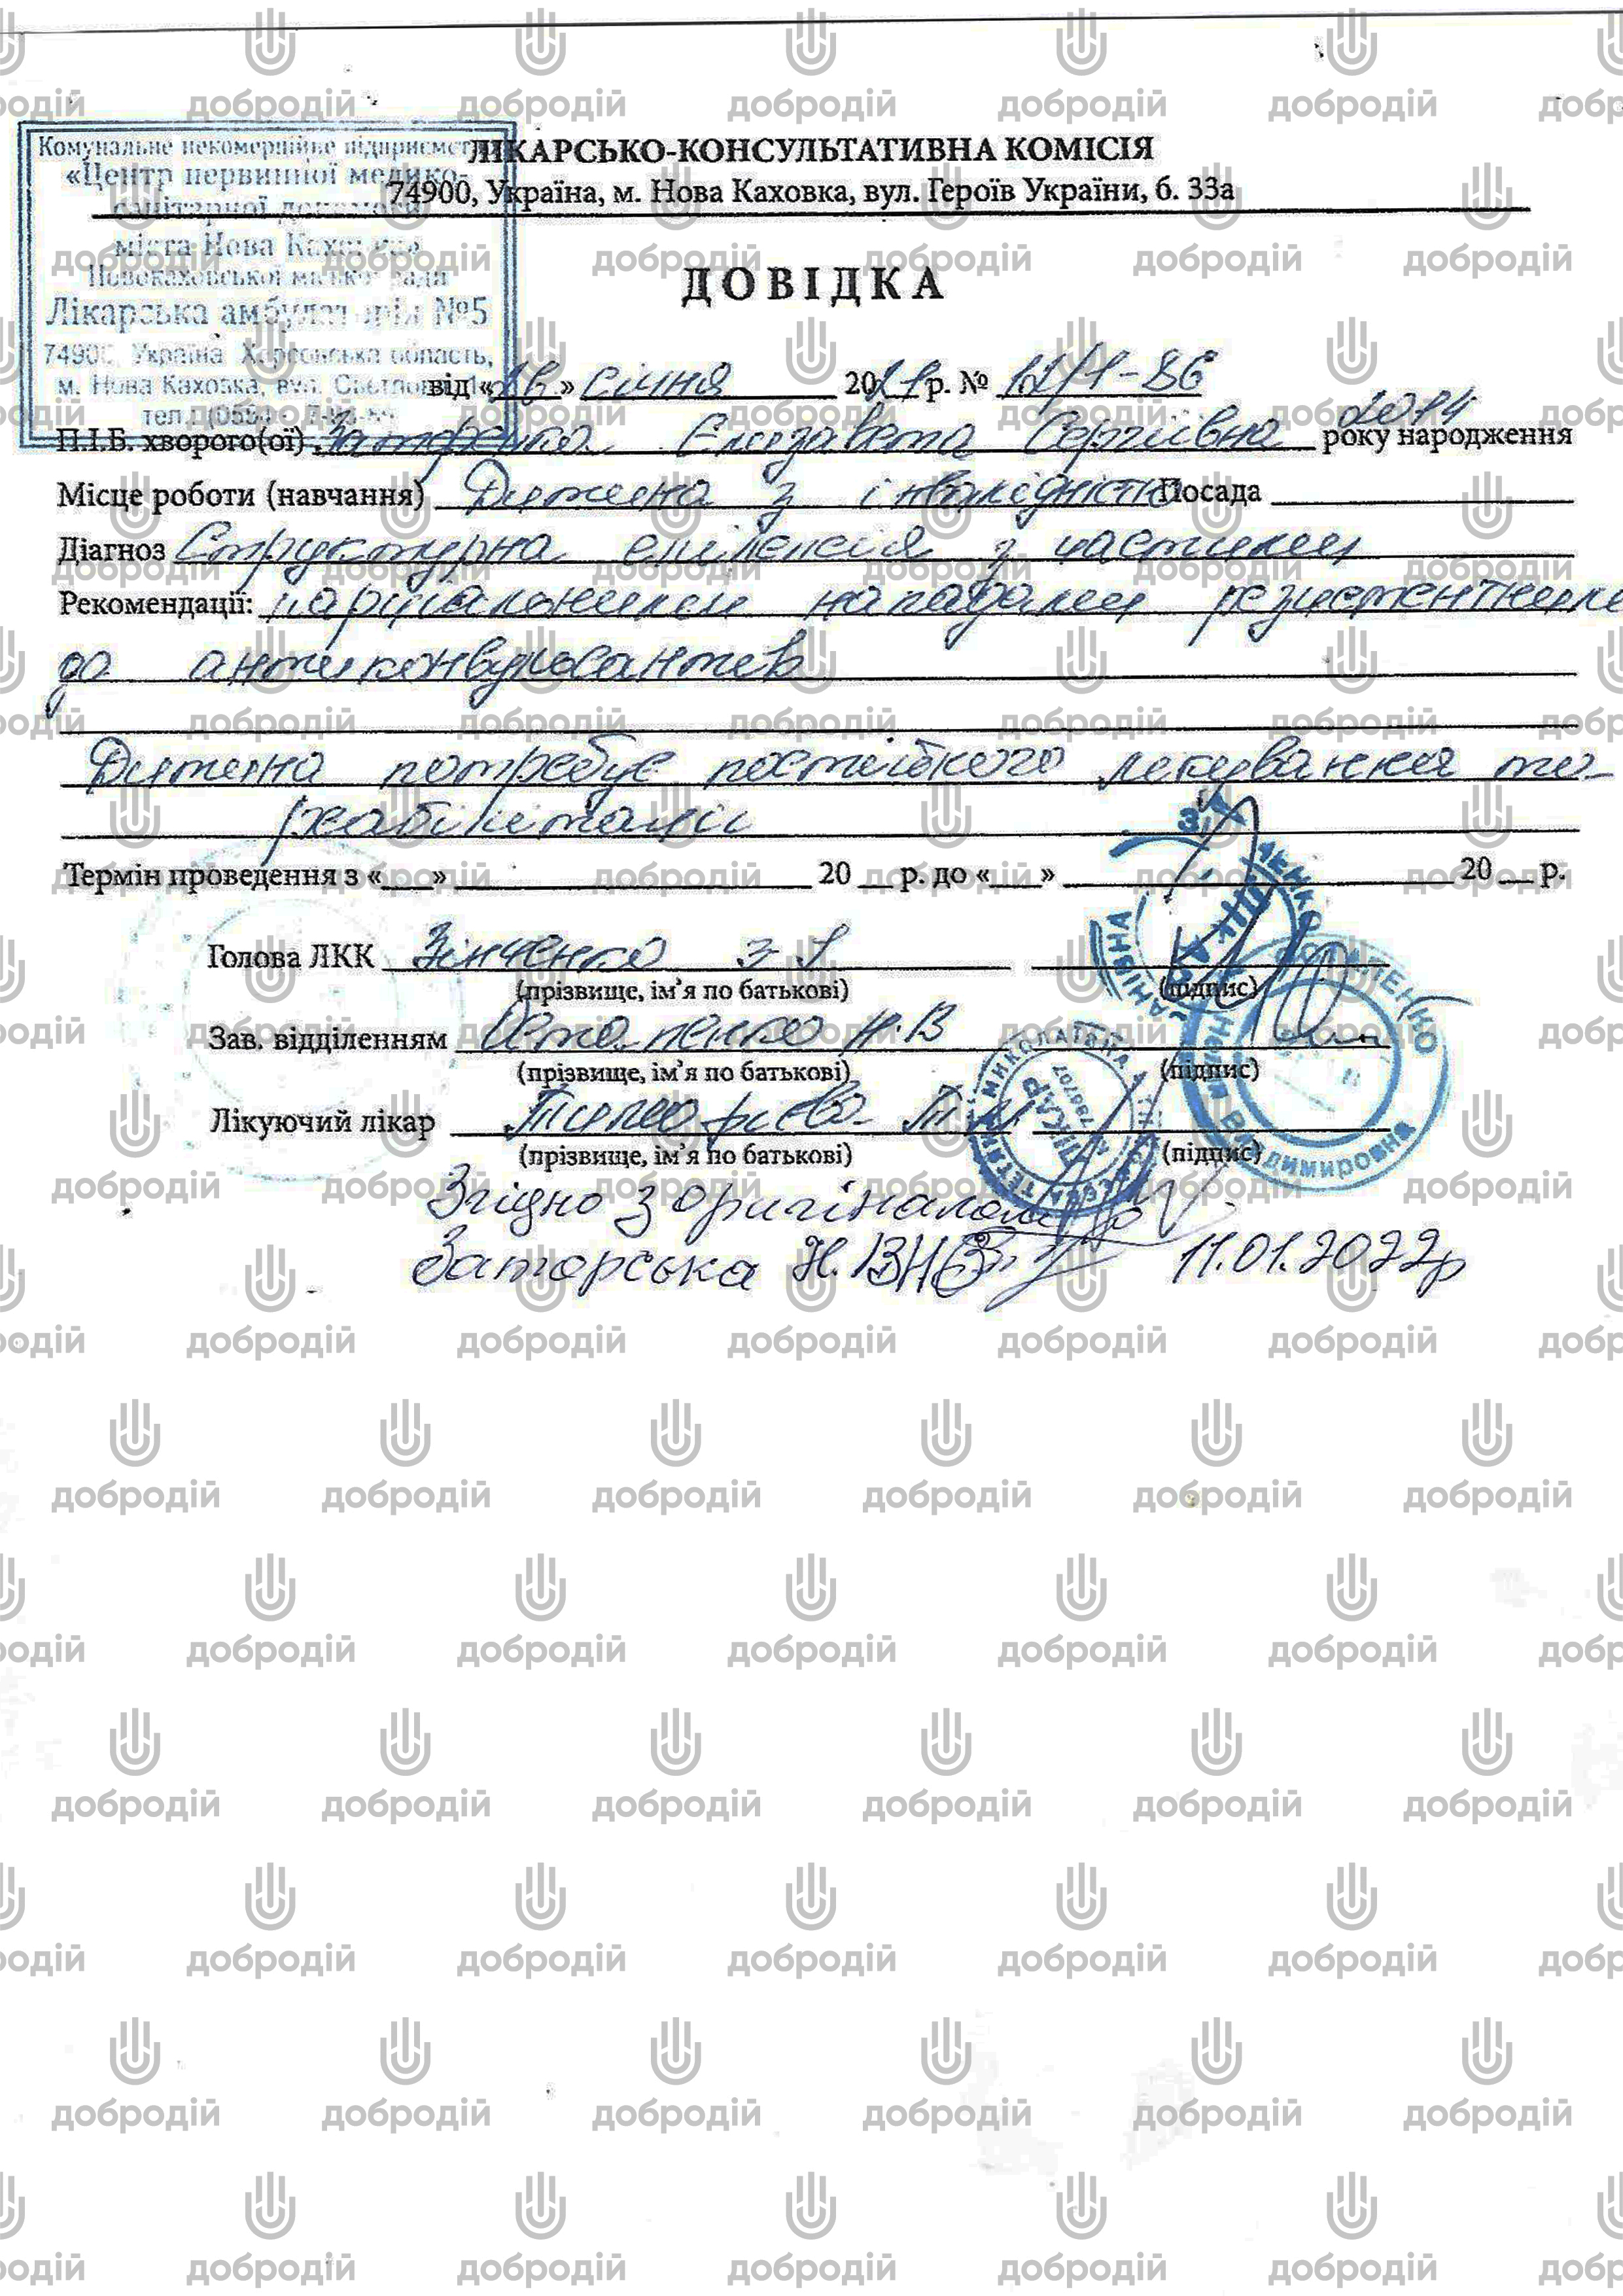 Комунальне некомерційне підприємство
«Центр первинної медико-
санітарної допомоги
міста Нова Каховка»
Новокаховської міської ради
Лікарська амбулаторія №5
74900, Україна, Херсонська область,
м. Нова Каховка, вул.
тел.
ЛІКАРСЬКО-КОНСУЛЬТАТИВНА КОМІСІЯ
74900, Україна, м. Нова Каховка, вул. Героїв України, б. 33а
ДОВІДКА
від «16» січня 2021 р. № 12/1-86
П.І.Б. хворого(ої) Єлизавета Сергіївна 2014 року народження
Місце роботи (навчання) Дитина з інвалідністю Посада
Діагноз Структурна епілепсія з частими
Рекомендації: парціальними нападами резистентними
до антиконвульсантів
Дитина потребує постійного лікування та
реабілітації
Термін проведення з «___» 20 __ р. до «___» 20 __ р.
Голова ЛКК Зінченко З І
(прізвище, ім’я по батькові) (підпис)
Зав. відділенням Остапенко Н.В
(прізвище, ім’я по батькові) (підпис)
Лікуючий лікар Тимофієва Т М
(прізвище, ім’я по батькові) (підпис)
Згідно з оригіналом
Заторська Н.В 11.01.2022р
добродій